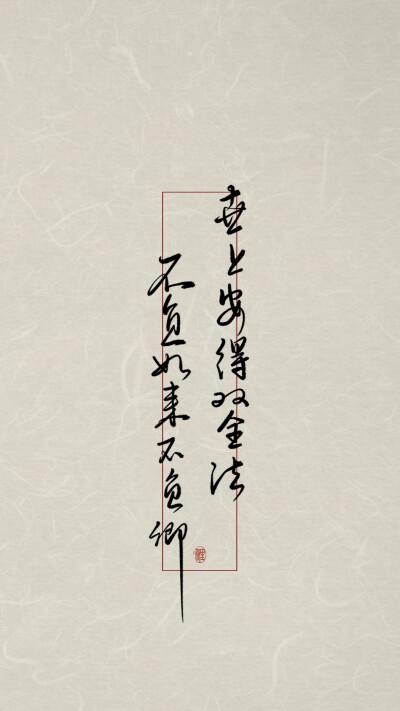 世上安得双全法
不负如来不负卿